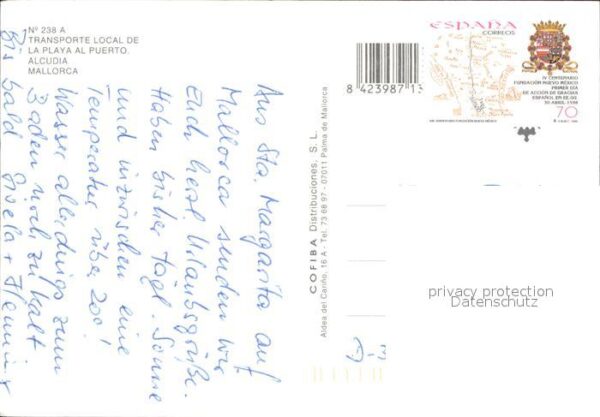 Nº 238 A
TRANSPORTE LOCAL DE
LA PLAYA AL PUERTO.
ALCUDIA
MALLORCA
Aus Sta. Margarita auf
Mallorca senden wir
Euch herzl. Urlaubsgrüße.
Haben bisher tägl. Sonne
und inzwischen eine
Temperatur über 20°!
Wasser allerdings zum
Baden noch zu kalt
Bis bald Gisela +
COFIBA Distribuciones, S. L.
Aldea del Cariño, 16 A - Tel. 73 68 97 - 07011 Palma de Mallorca
8 423987 13
ESPAÑA
CORREOS
IV CENTENARIO
FUNDACIÓN NUEVO MÉXICO
PRIMER DÍA
DE ACCIÓN DE GRACIAS
ESPAÑOL EN EE.UU.
30 ABRIL 1598
70
privacy protection
Datenschutz